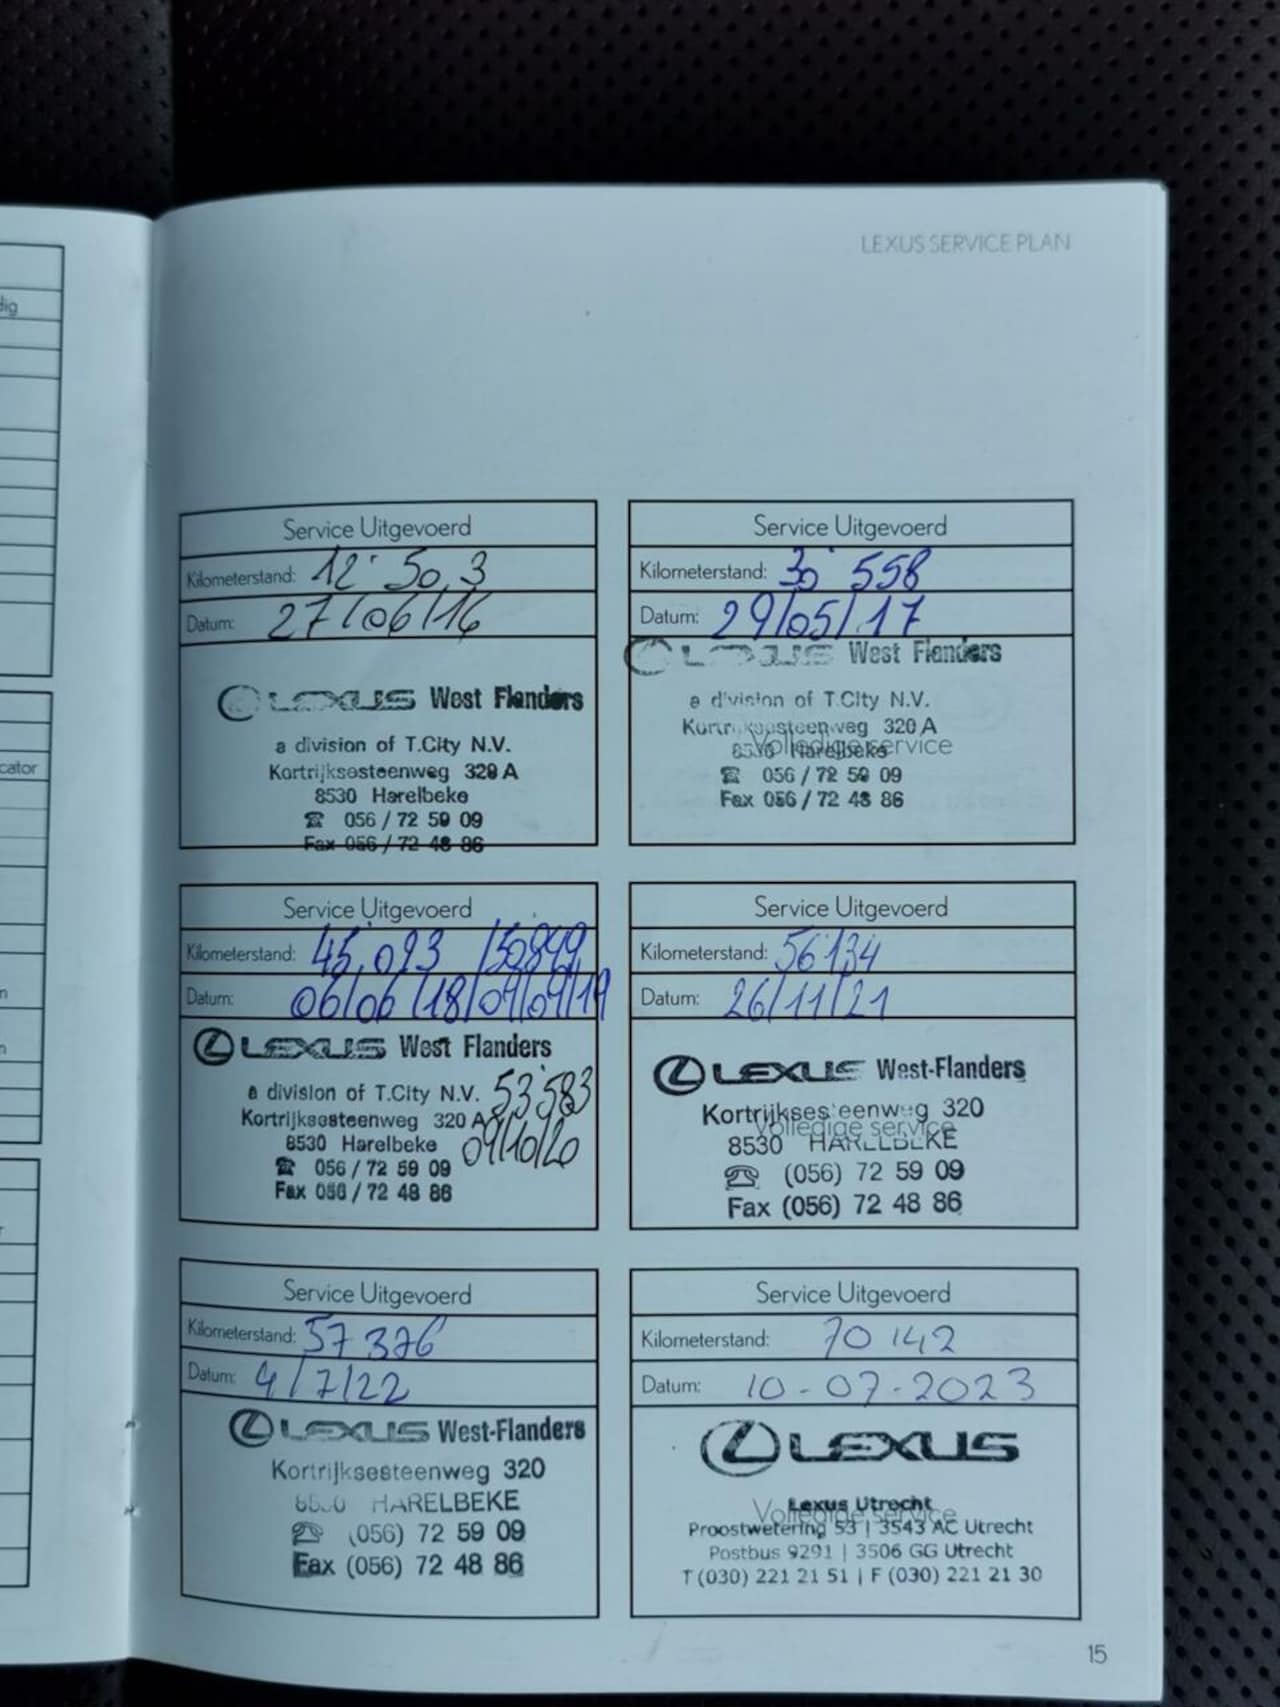 LEXUS SERVICE PLAN
dig
cator
n
n
r
Service Uitgevoerd
Kilometerstand: 12.503
Datum: 27/06/16
LEXUS West Flanders
a division of T.City N.V.
Kortrijksesteenweg 320 A
8530 Harelbeke
☎ 056 / 72 59 09
Fax 056 / 72 48 86
Service Uitgevoerd
Kilometerstand: 30.558
Datum: 29/05/17
LEXUS West Flanders
a division of T.City N.V.
Kortrijksesteenweg 320 A
8530 Harelbeke
Volledige service
☎ 056 / 72 59 09
Fax 056 / 72 48 86
Service Uitgevoerd
Kilometerstand: 45.093 / 50849
Datum: 06/06/18/09/09/19
LEXUS West Flanders
a division of T.City N.V. 53.583
Kortrijksesteenweg 320 A
8530 Harelbeke 09/10/20
☎ 056 / 72 59 09
Fax 056 / 72 48 86
Service Uitgevoerd
Kilometerstand: 56134
Datum: 26/11/21
LEXUS West-Flanders
Kortrijksesteenweg 320
Volledige service
8530 HARELBEKE
☎ (056) 72 59 09
Fax (056) 72 48 86
Service Uitgevoerd
Kilometerstand: 57376
Datum: 4/7/22
LEXUS West-Flanders
Kortrijksesteenweg 320
8530 HARELBEKE
☎ (056) 72 59 09
Fax (056) 72 48 86
Service Uitgevoerd
Kilometerstand: 70142
Datum: 10-07-2023
LEXUS
Lexus Utrecht
Volledige service
Proostwetering 53 | 3543 AC Utrecht
Postbus 9291 | 3506 GG Utrecht
T (030) 221 21 51 | F (030) 221 21 30
15